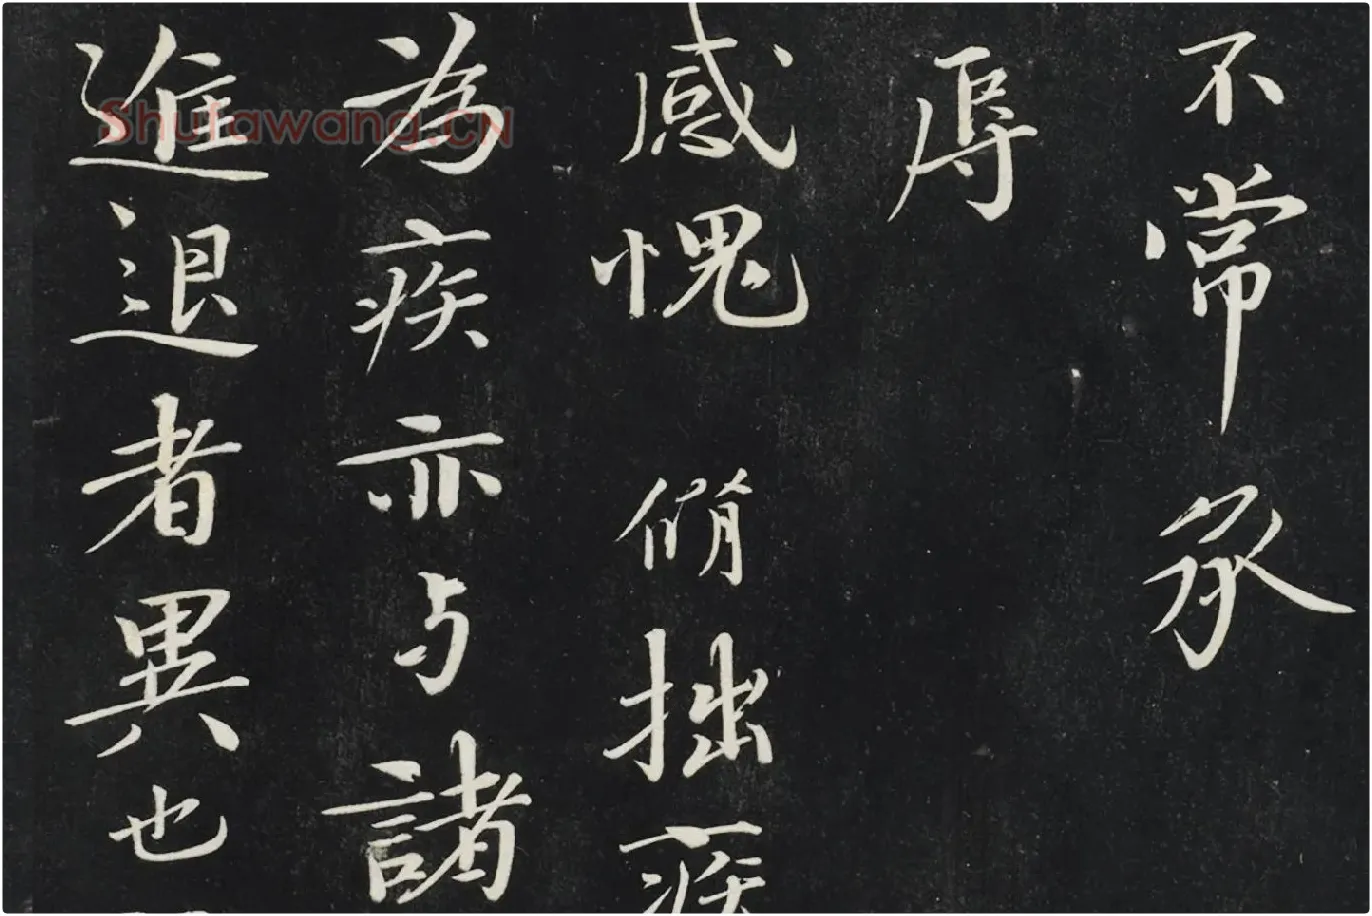 不常承
辱
感愧 脩拙疾
為疾亦与諸
進退者異也
Shufawang.CN